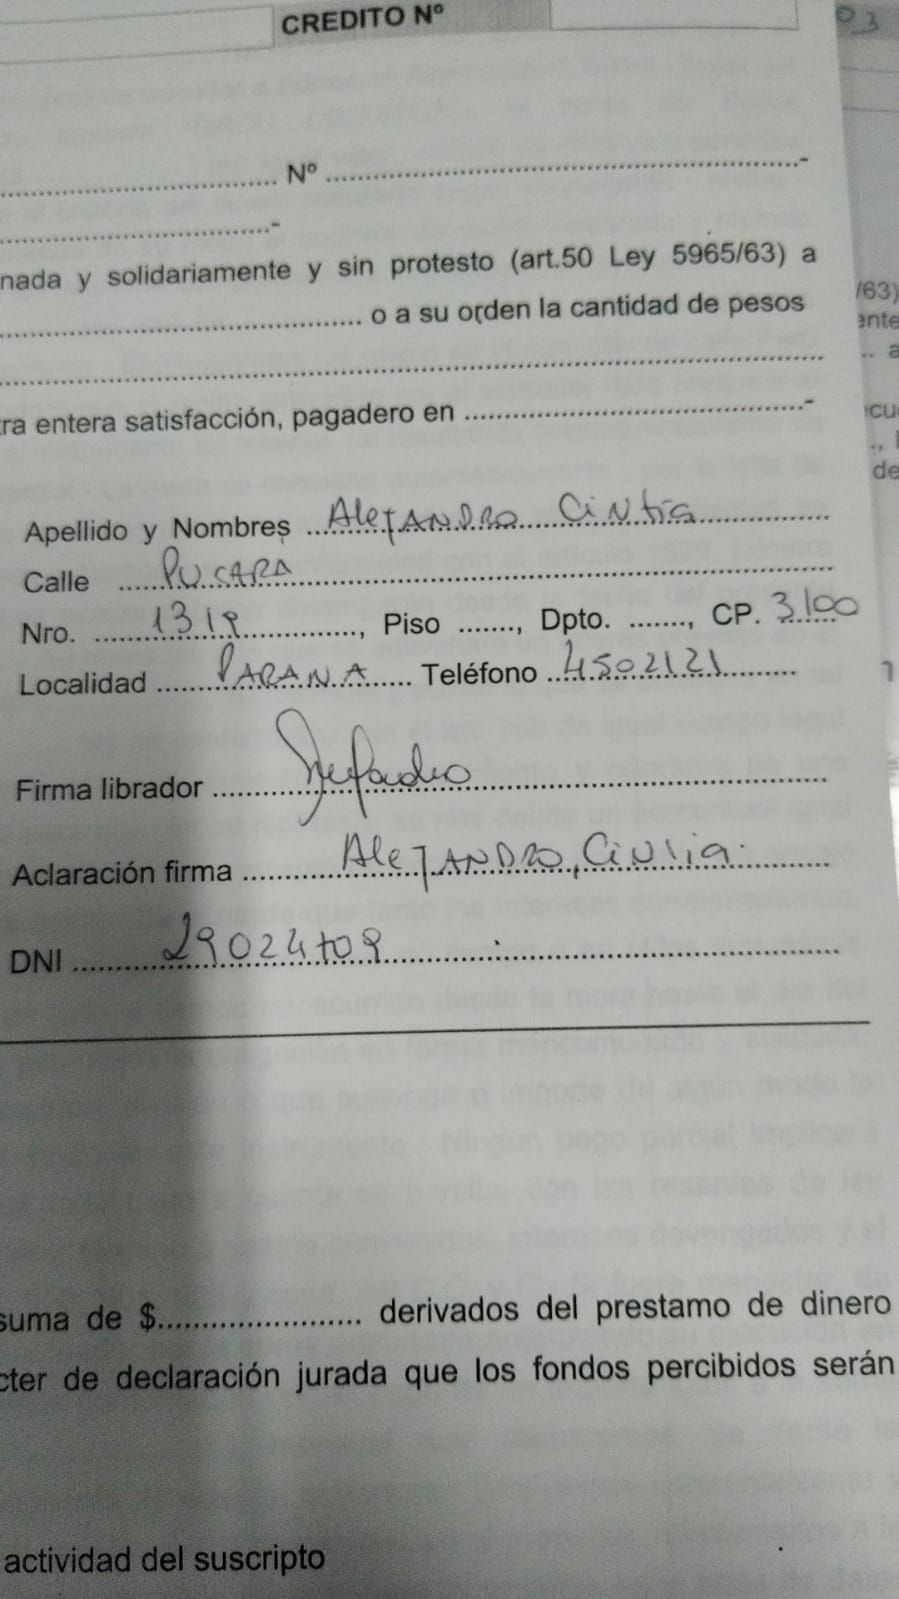 CREDITO Nº
Nº ........................-
........................-
nada y solidariamente y sin protesto (art.50 Ley 5965/63) a
........................ o a su orden la cantidad de pesos
tra entera satisfacción, pagadero en ........................-
Apellido y Nombres Alejandro Cintia
Calle PUCARA
Nro. 1319, Piso ......., Dpto. ......., CP. 3100
Localidad PARANA Teléfono 4502121
Firma librador
Aclaración firma Alejandro, Cintia
DNI 29024709
suma de $........................ derivados del prestamo de dinero
cter de declaración jurada que los fondos percibidos serán
actividad del suscripto
/63)
ente
.. a
cu
de